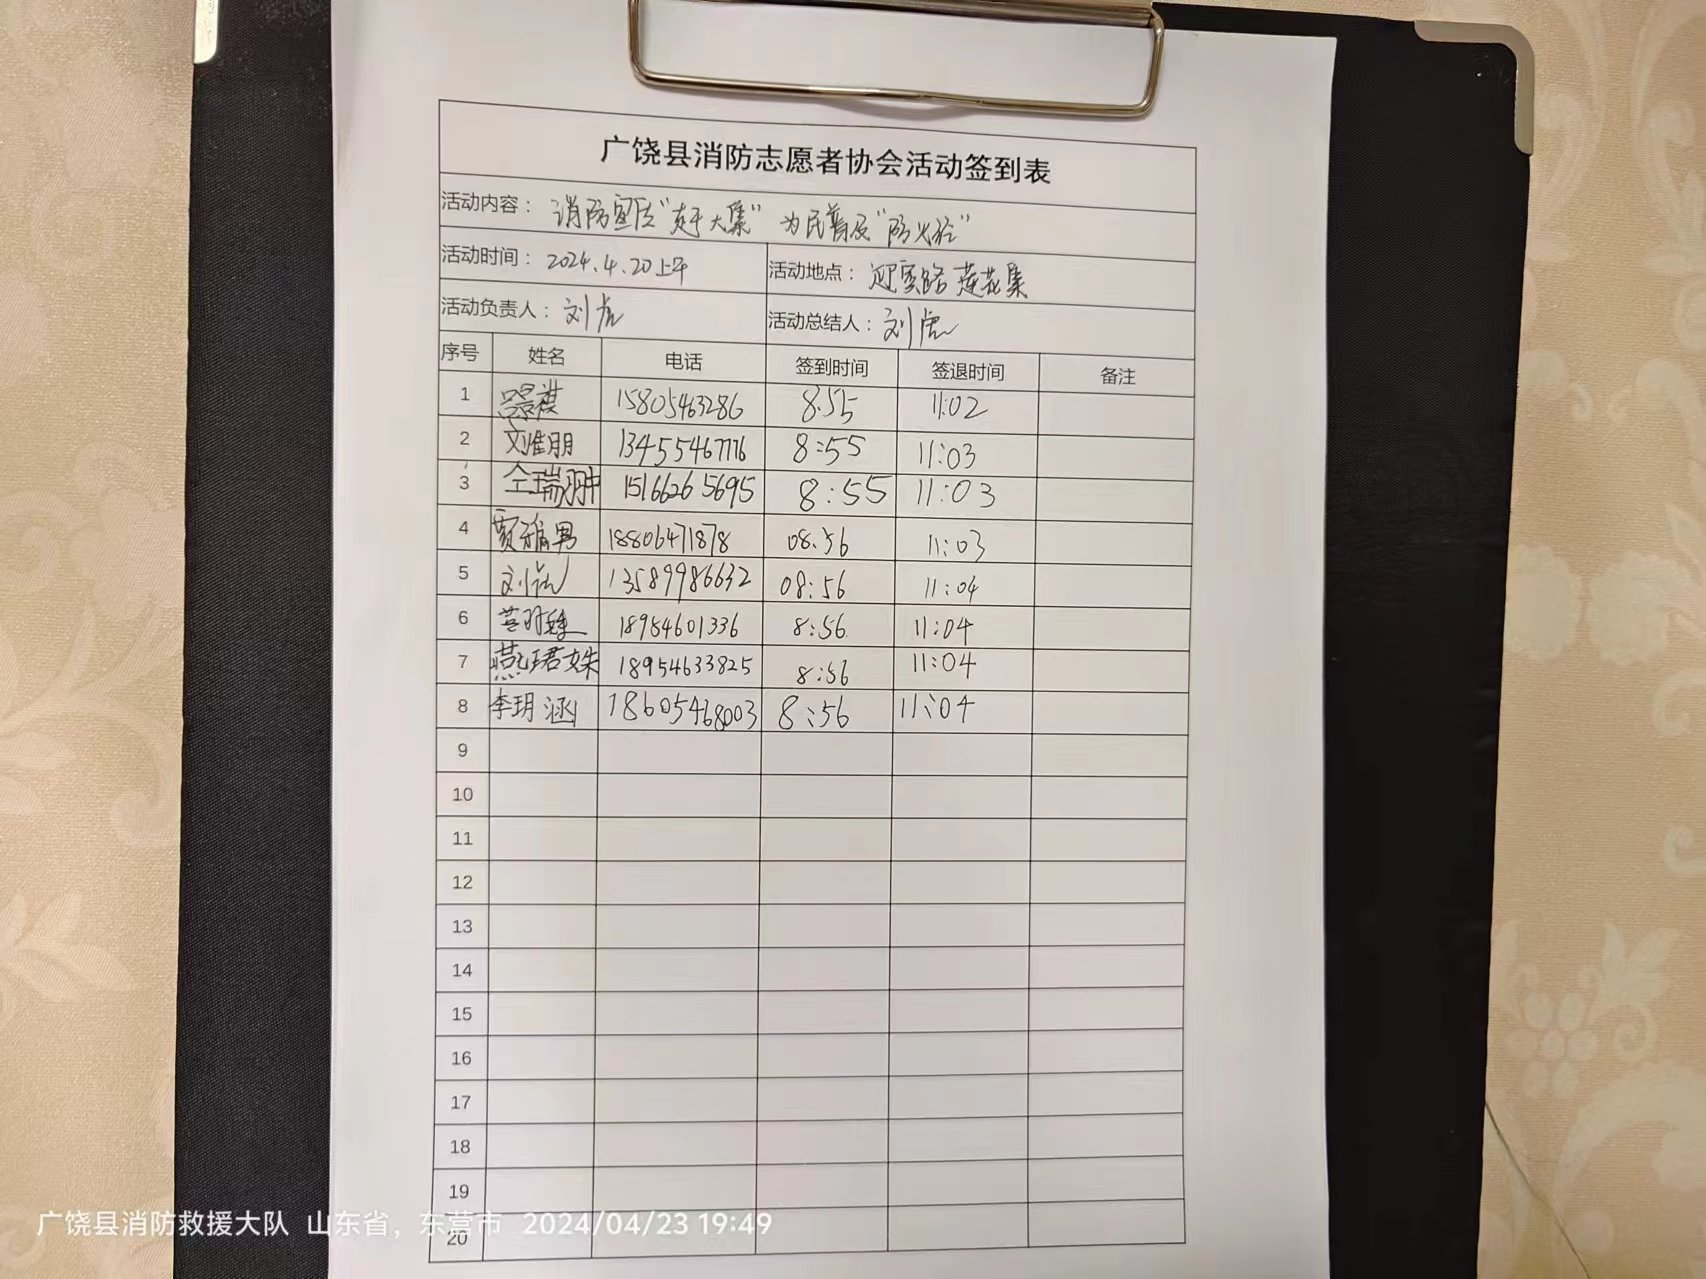 广饶县消防志愿者协会活动签到表
活动内容： 消防宣传“赶大集” 为民普及“防火经”
活动时间： 2024.4.20上午 活动地点： 迎宾路 莲花集
活动负责人： 刘虎 活动总结人： 刘虎
序号 姓名 电话 签到时间 签退时间 备注
1 15805463286 8:55 11:02
2 刘维朋 13455467776 8:55 11:03
3 仝瑞翀 15166265695 8:55 11:03
4 贾雅男 18806471878 08:56 11:03
5 刘虎 13589986632 08:56 11:04
6 18954601336 8:56 11:04
7 燕珺姝 18954633825 8:56 11:04
8 李玥涵 18605468003 8:56 11:04
9
10
11
12
13
14
15
16
17
18
19
20
广饶县消防救援大队 山东省，东营市 2024/04/23 19:49